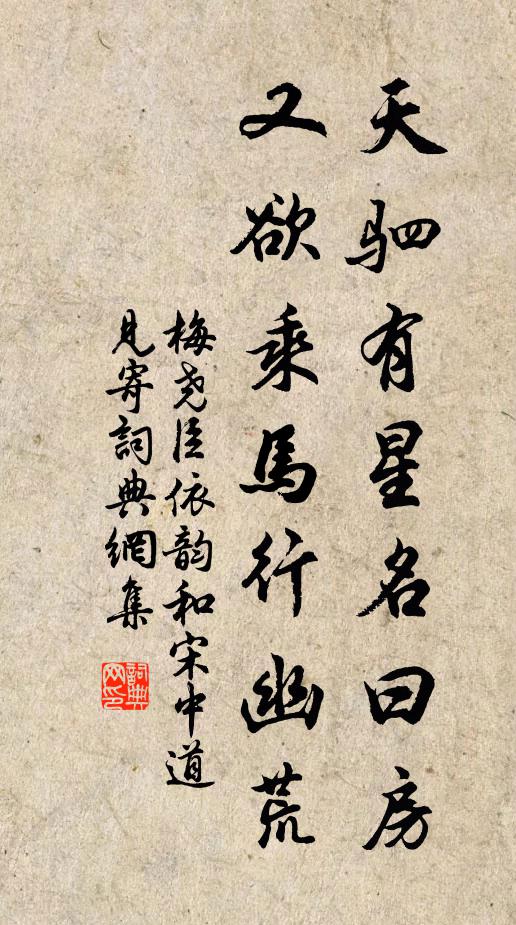 天駟有星名曰房
又欲乘馬行幽荒
梅尧臣依韵和宋中道
見寄詞典網集
詞典
网印